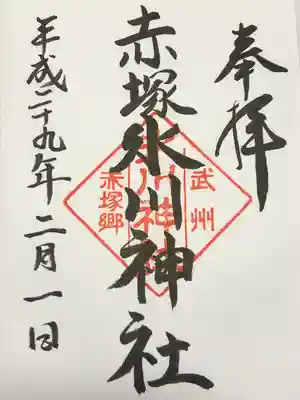 奉拝
赤塚氷川神社
武州
氷川神社
赤塚郷
平成二十九年二月一日